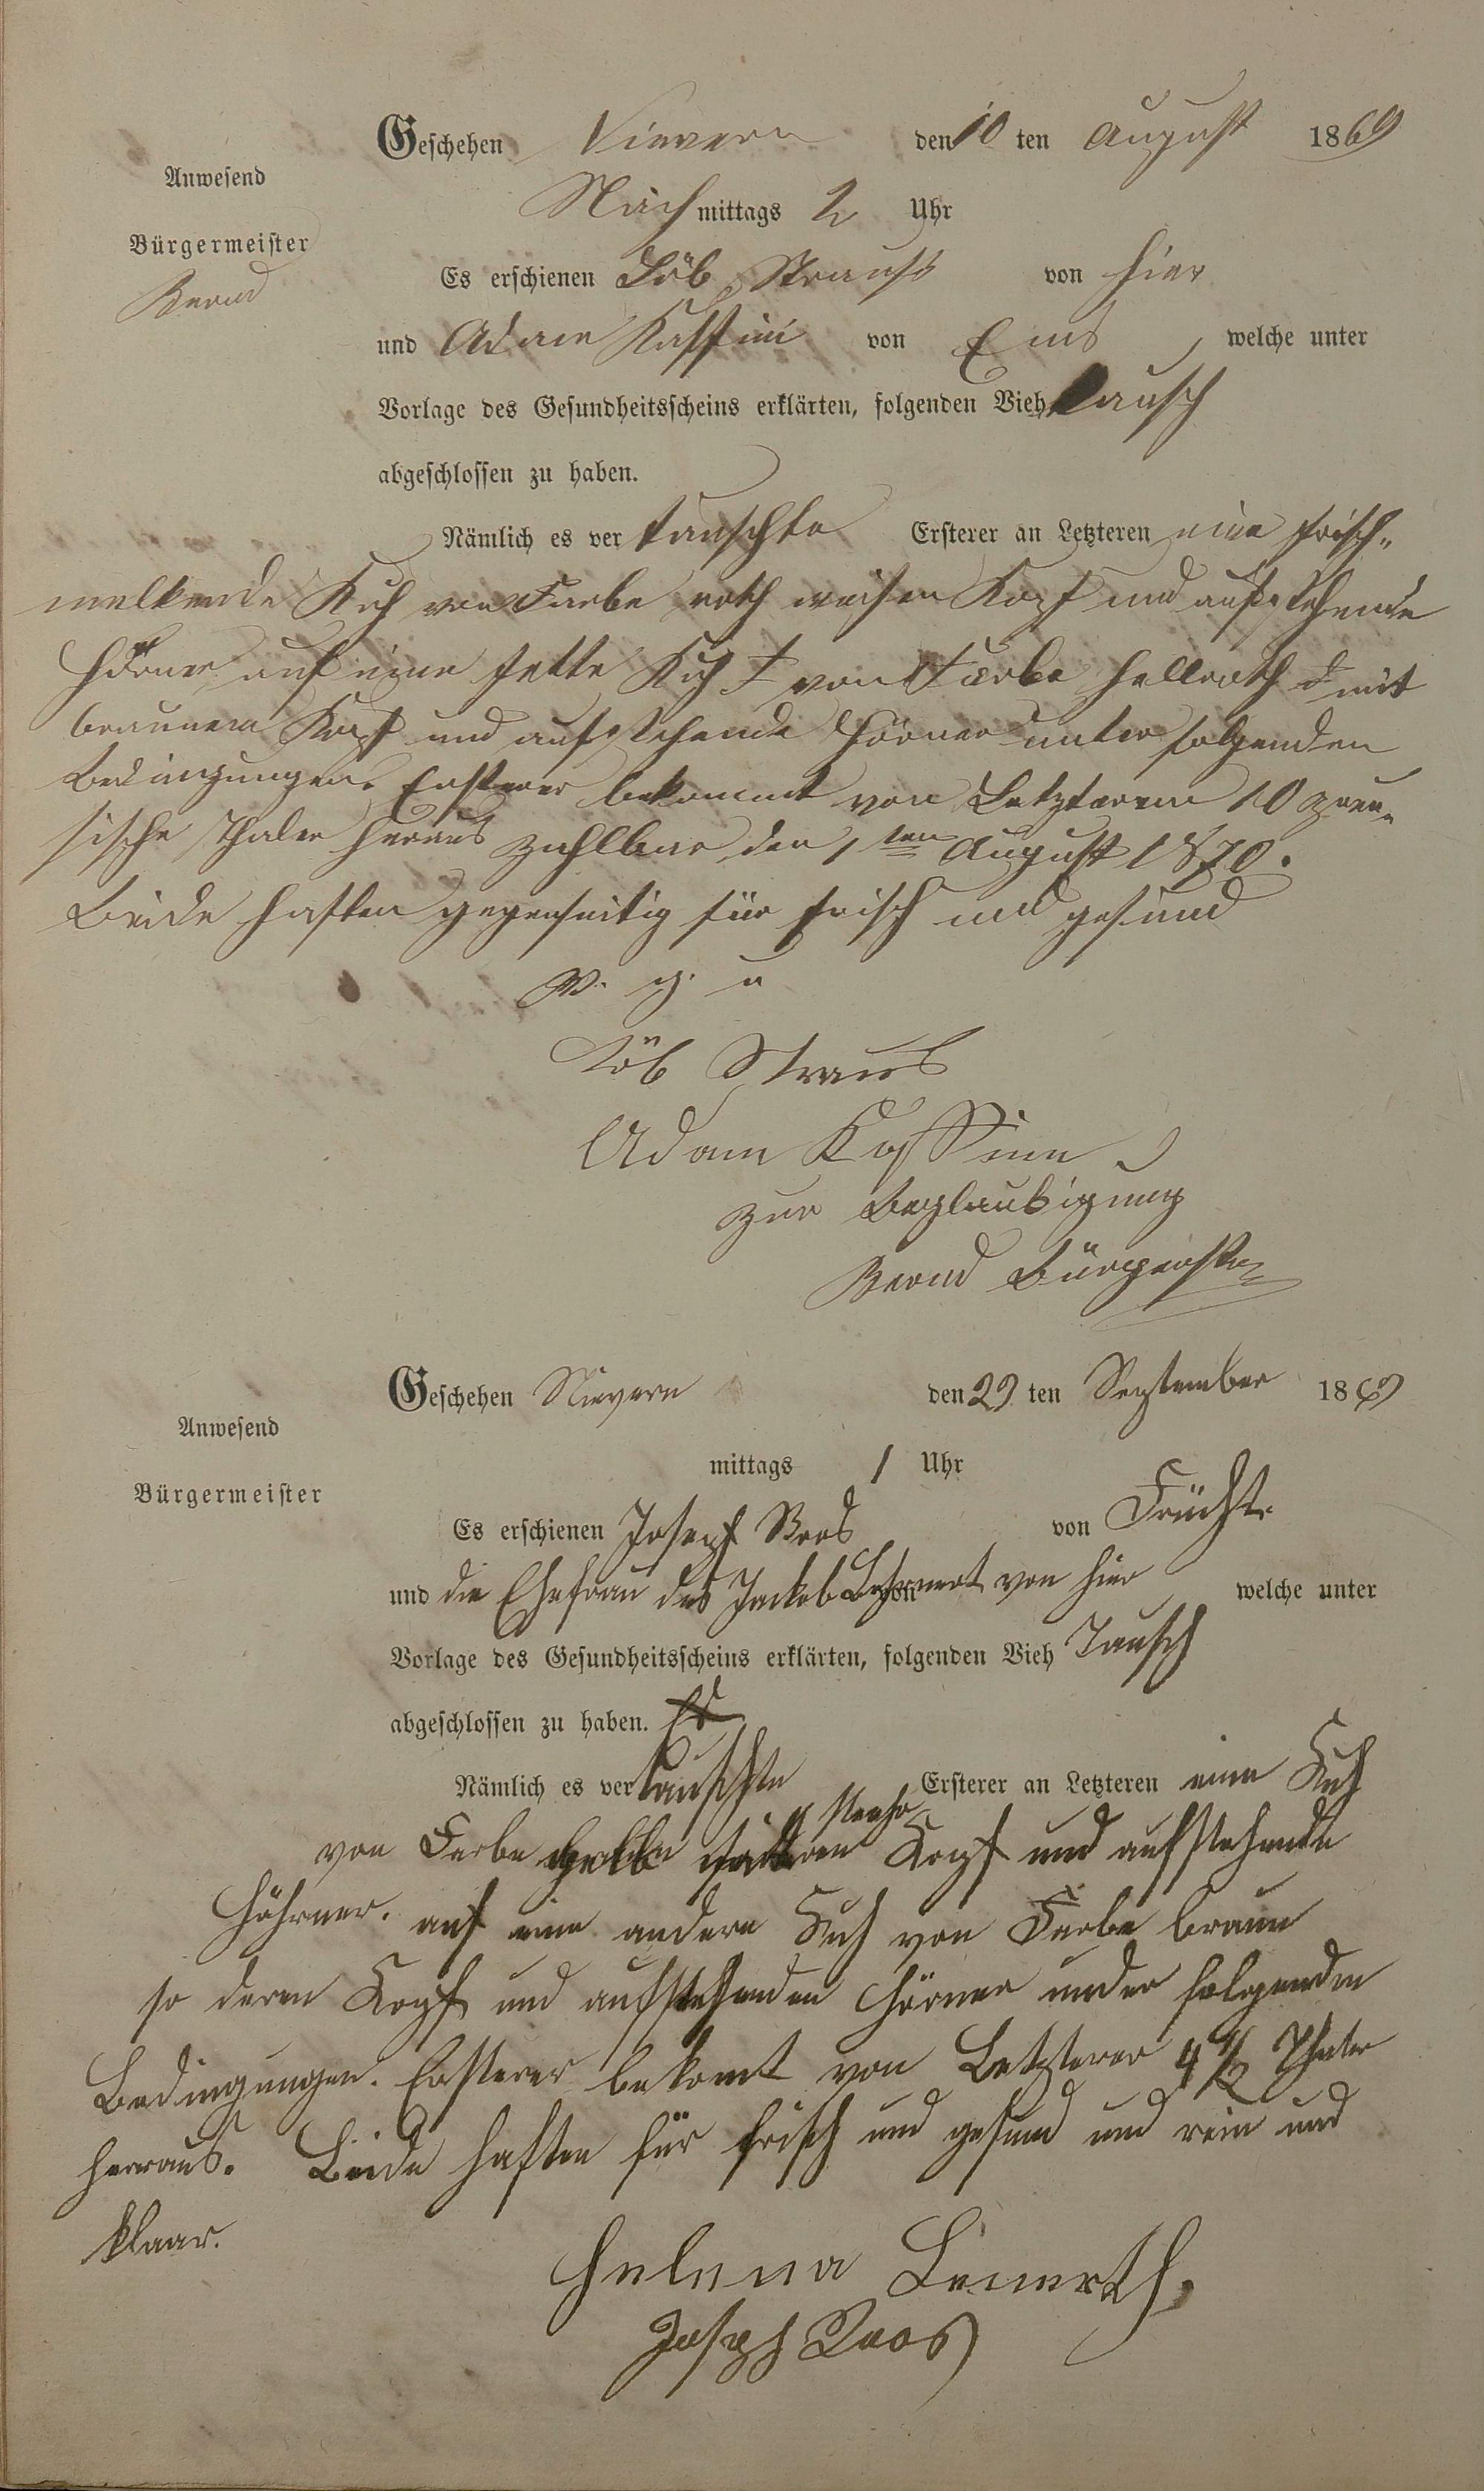 Geschehen Nievern den 10 ten August 1869
Anwesend
Nachmittags 2 Uhr
Bürgermeister
Bernd
Es erschienen Löb Strauß von hier
und Adam Kaffine von Ems, welche unter
Vorlage des Gesundheitsscheins erklärten, folgenden Viehtausch
abgeschlossen zu haben.
Nämlich es vertauschte Ersterer an Letzteren eine frisch-
melkende Kuh von Farbe roth weisen Kopf und aufstehende
Hörner auf eine fette Kuh von Farbe hellroth mit
braunem Kopf und aufstehende Hörner unter folgenden
Bedingungen. Ersterer bekommt von Letzterem 10 preu-
sische Thaler heraus zahlbar den 1ten August 1870.
Beide haften gegenseitig für frisch und gesund
V. g. u
Löb Straus
Adam
zur Beglaubigung
Bernd Bürgermstr
Geschehen Nievern den 29 ten September 1869
Anwesend
mittags 1 Uhr
Bürgermeister
Es erschienen Joseph Roos von Frücht.
und die Ehefrau des Jackob von hier welche unter
Vorlage des Gesundheitsscheins erklärten, folgenden Vieh Tausch
abgeschlossen zu haben.
Nämlich es vertauschte Ersterer an Letzteren eine Kuh
von Farbe Kopf und aufstehende
Höhrner. auf eine andere Kuh von Farbe braun
so deren Kopf und aufstehenden Hörner under folgenden
Bedingungen. Ersterer bekomt von Letzterer 4 1/2 Thaler
herraus. Beide haften für frisch und gesund und rein und
klaar.
Helena Leinerth,
Joseph Roos